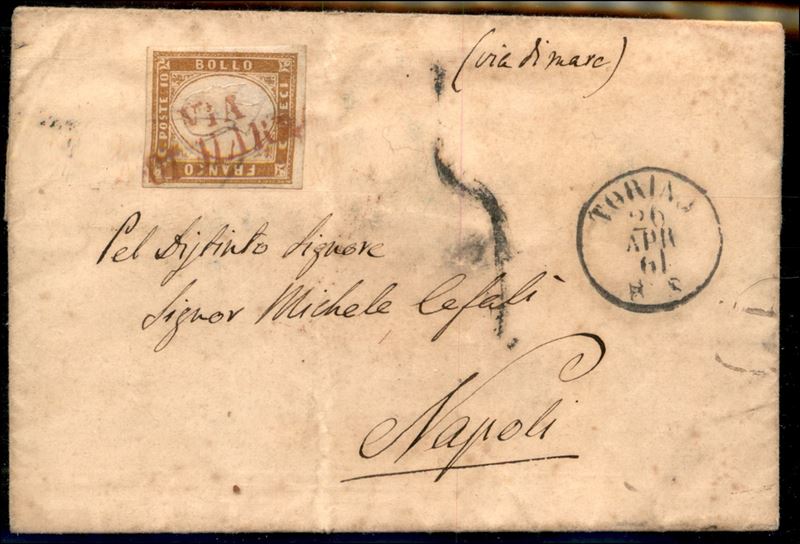 (via di mare)
BOLLO
POSTE 10
C. DIECI
FRANCO
VIA
DI MARE
TORINO
26
APR
61
Pel Distinto Signore
Signor Michele Cefalì
Napoli